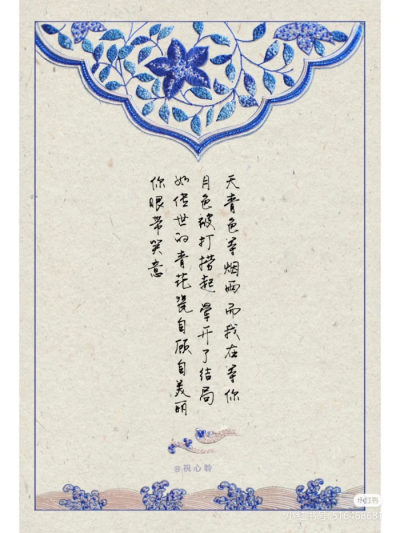 天青色等烟雨 而我在等你
月色被打捞起 晕开了结局
如传世的青花瓷自顾自美丽
你眼带笑意
@祝心聆
小红书